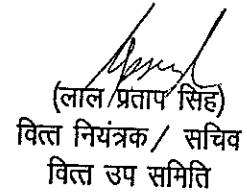 (लाल प्रताप सिंह)
वित्त नियंत्रक / सचिव
वित्त उप समिति